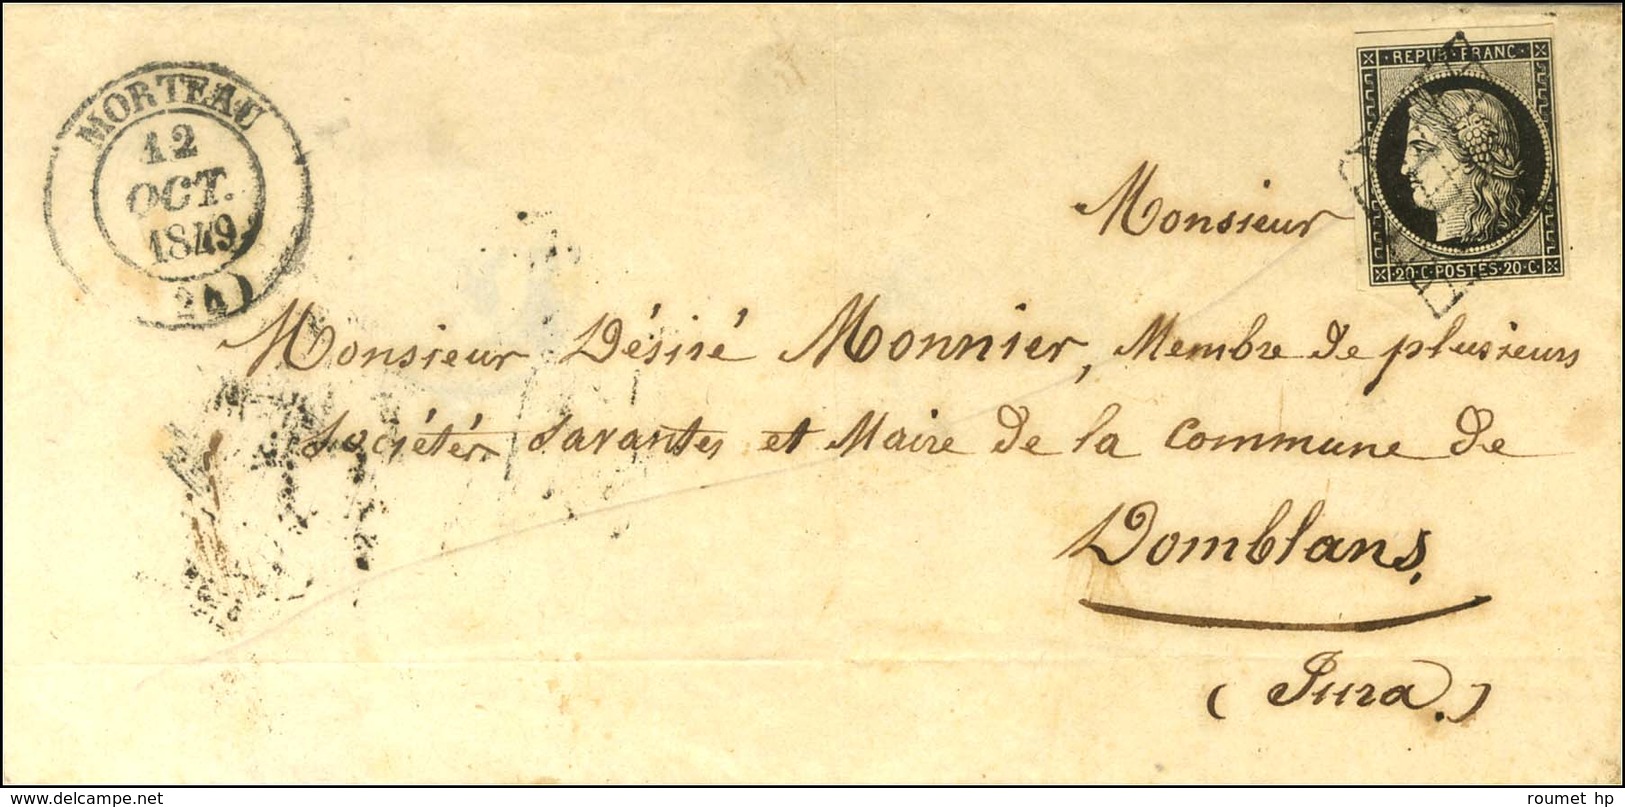 MORTEAU
12
OCT.
1849
(24)
REPUB·FRANC·
20·C·POSTES·20·C·
Monsieur
Monsieur Désiré Monnier, Membre de plusieurs
Sociétés Savantes et Maire de la Commune de
Domblans,
(Jura.)
roumet hp